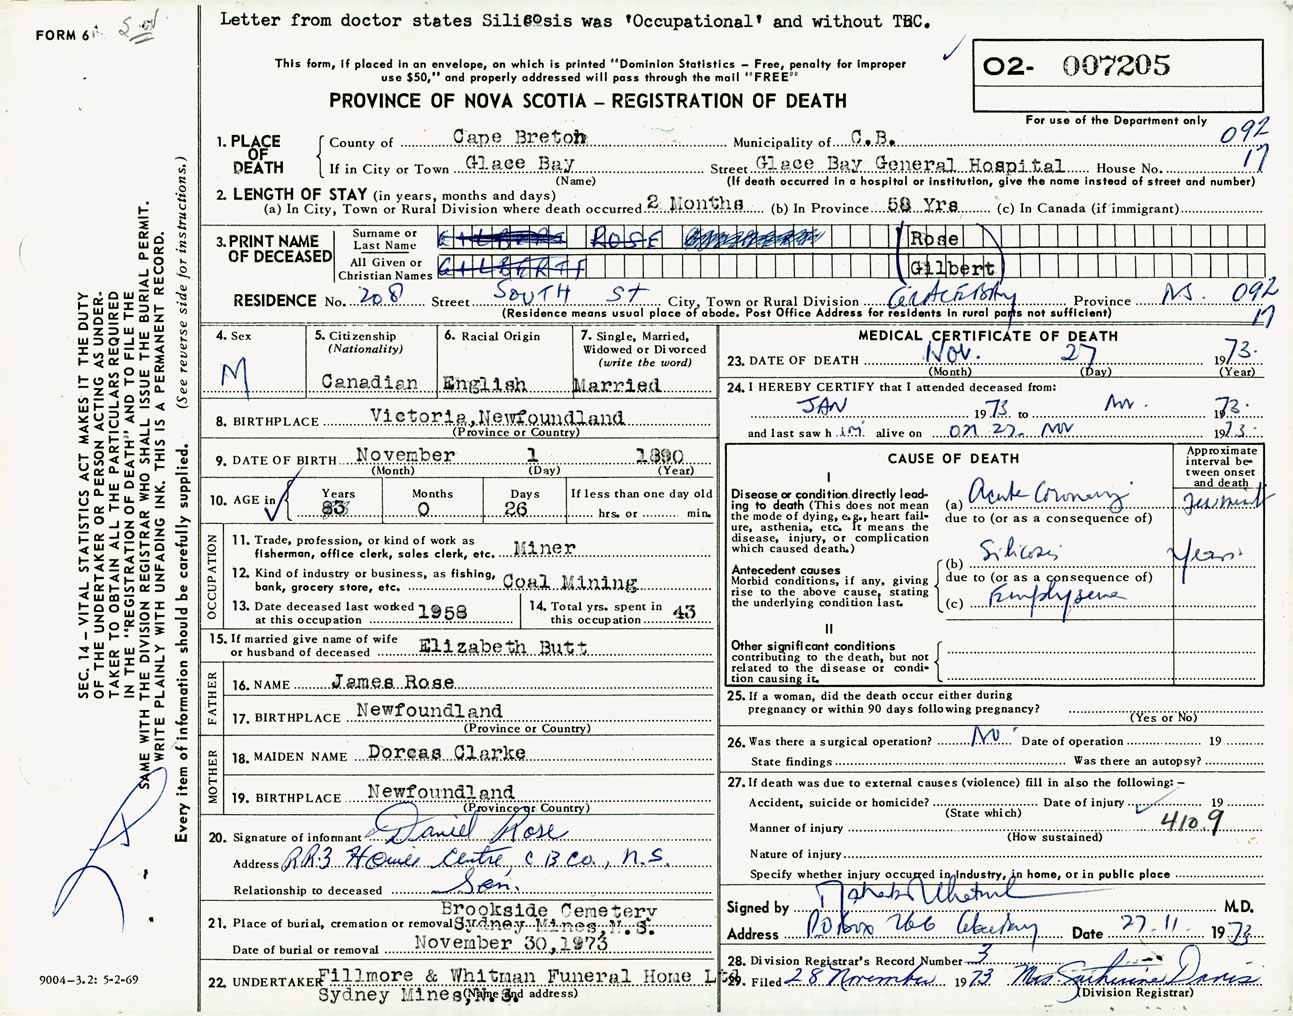 Letter from doctor states Silicosis was 'Occupational' and without TBC.
FORM 6
This form, if placed in an envelope, on which is printed "Dominion Statistics – Free, penalty for improper
use $50," and properly addressed will pass through the mail "FREE"
PROVINCE OF NOVA SCOTIA – REGISTRATION OF DEATH
02- 007205
For use of the Department only
092
17
1. PLACE OF DEATH
County of Cape Breton Municipality of C.B.
If in City or Town Glace Bay Street Glace Bay General Hospital House No.
(Name) (If death occurred in a hospital or institution, give the name instead of street and number)
2. LENGTH OF STAY (in years, months and days)
(a) In City, Town or Rural Division where death occurred 2 Months (b) In Province 58 Yrs (c) In Canada (if immigrant)
3. PRINT NAME OF DECEASED
Surname or Last Name ROSE Rose
All Given or Christian Names GILBERT Gilbert
RESIDENCE No. 208 Street SOUTH ST City, Town or Rural Division GLACE BAY Province N.S. 092
(Residence means usual place of abode. Post Office Address for residents in rural parts not sufficient) 17
4. Sex M
5. Citizenship (Nationality) Canadian
6. Racial Origin English
7. Single, Married, Widowed or Divorced (write the word) Married
8. BIRTHPLACE Victoria, Newfoundland
(Province or Country)
9. DATE OF BIRTH November 1 1890
(Month) (Day) (Year)
10. AGE in Years 83 Months 0 Days 26 If less than one day old hrs. or min.
OCCUPATION
11. Trade, profession, or kind of work as
fisherman, office clerk, sales clerk, etc. Miner
12. Kind of industry or business, as fishing,
bank, grocery store, etc. Coal Mining
13. Date deceased last worked at this occupation 1958
14. Total yrs. spent in this occupation 43
15. If married give name of wife
or husband of deceased Elizabeth Butt
FATHER
16. NAME James Rose
17. BIRTHPLACE Newfoundland
(Province or Country)
MOTHER
18. MAIDEN NAME Dorcas Clarke
19. BIRTHPLACE Newfoundland
(Province or Country)
20. Signature of informant Daniel Rose
Address R.R.3 Howie Centre, C B Co., N.S.
Relationship to deceased Son.
21. Place of burial, cremation or removal Brookside Cemetery
Sydney Mines, N.S.
Date of burial or removal November 30, 1973
22. UNDERTAKER Fillmore & Whitman Funeral Home Ltd
Sydney Mines, N.S.
(Name and address)
MEDICAL CERTIFICATE OF DEATH
23. DATE OF DEATH Nov. 27 1973.
(Month) (Day) (Year)
24. I HEREBY CERTIFY that I attended deceased from:
JAN 1973 to Nov. 1973.
and last saw him alive on on 27. Nov 1973.
CAUSE OF DEATH
Approximate interval between onset and death
I
Disease or condition directly leading to death (This does not mean the mode of dying, e.g., heart failure, asthenia, etc. It means the disease, injury, or complication which caused death.)
(a) Acute Coronary
due to (or as a consequence of)
(b) Silicosis Years.
due to (or as a consequence of)
(c) Emphysema
Antecedent causes
Morbid conditions, if any, giving rise to the above cause, stating the underlying condition last.
II
Other significant conditions
contributing to the death, but not related to the disease or condition causing it.
25. If a woman, did the death occur either during
pregnancy or within 90 days following pregnancy?
(Yes or No)
26. Was there a surgical operation? No Date of operation 19
State findings Was there an autopsy?
27. If death was due to external causes (violence) fill in also the following: –
Accident, suicide or homicide? Date of injury 19
(State which)
Manner of injury 410.9
(How sustained)
Nature of injury
Specify whether injury occurred in industry, in home, or in public place
Signed by M.D.
Address PO box 266 Glace Bay Date 27.11. 1973
28. Division Registrar's Record Number 3
29. Filed 28 November 1973 Mrs. Catherine Davis
(Division Registrar)
SEC. 14 – VITAL STATISTICS ACT MAKES IT THE DUTY
OF THE UNDERTAKER OR PERSON ACTING AS UNDER-
TAKER TO OBTAIN ALL THE PARTICULARS REQUIRED
IN THE "REGISTRATION OF DEATH" AND TO FILE THE
SAME WITH THE DIVISION REGISTRAR WHO SHALL ISSUE THE BURIAL PERMIT.
WRITE PLAINLY WITH UNFADING INK. THIS IS A PERMANENT RECORD.
Every item of information should be carefully supplied. (See reverse side for instructions.)
9004-3.2: 5-2-69